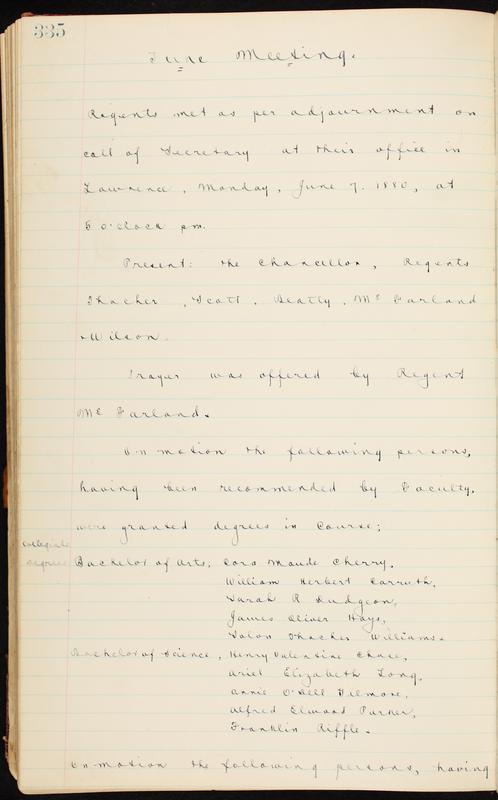 335
June Meeting.
Regents met as per adjournment on
call of Secretary at their office in
Lawrence, Monday, June 7. 1880, at
5 o'clock pm.
Present: the Chancellor, Regents
Thacher, Scott, Beatty, Mc Farland
& Wilson.
Prayer was offered by Regent
Mc Farland.
On motion the following persons,
having been recommended by Faculty,
were granted degrees in Course;
Collegiate
degrees
Bachelor of Arts; Cora Maude Cherry,
William Herbert Carruth,
Sarah R Dudgeon,
James Oliver Hays,
Solon Thacher Williams.
Bachelor of Science, Henry Valentine Chase,
Ariel Elizabeth Long,
Annie O'Dell Gilmore,
Alfred Elwood Parker,
Franklin Riffle.
On motion the following persons, having